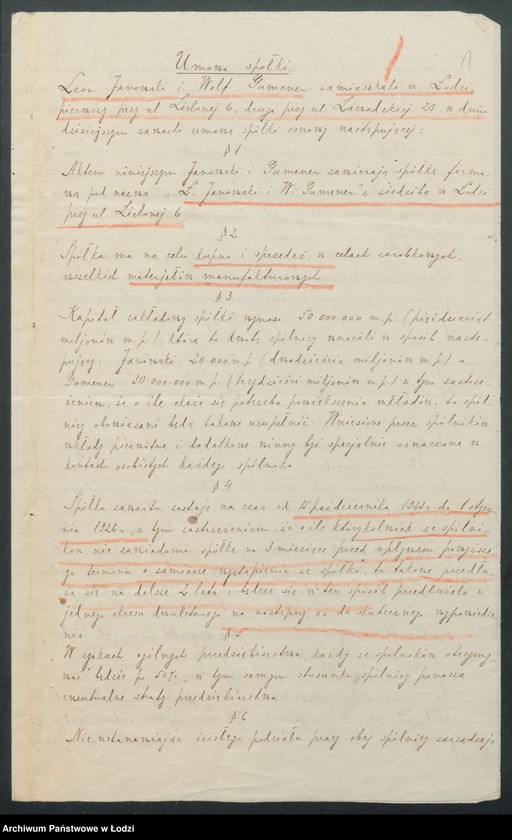 Umowa spółki.
Leon Janowski i Wolf Gumener zamieszkali w Łodzi,
pierwszy przy ul Zielonej 6, drugi przy ul Zawadzkiej 23, w dniu
dzisiejszym zawarli umowę spółki osnowy następującej:
§ 1
Aktem niniejszym Janowski i Gumener zawierają spółkę firmo
wą pod nazwą „L. Janowski i W. Gumener" z siedzibą w Łodzi
przy ul. Zielonej 6
§ 2
Spółka ma na celu kupno i sprzedaż, w celach zarobkowych,
wszelkich materjałów manufakturowych.
§ 3
Kapitał zakładowy spółki wynosi 50.000.000 m.p. (pięćdziesiąt
miljonów m.p.), którą to kwotę spólnicy wnieśli w sposób nastę-
pujący: Janowski 20.000.000 m.p. (dwadzieścia miljonów m.p.) a
Gumener 30.000.000 m.p. (trzydzieści miljonów m.p.) z tym zastrze-
żeniem, że o ile okaże się potrzeba powiększenia wkładów, to spól-
nicy obowiązani będą takowe uzupełnić. Wniesione przez spólników
wkłady pierwotne i dodatkowe winny być specjalnie oznaczone w
kontach osobistych każdego spólnika
§ 4
Spółka zawartą zostaje na czas od 15 października 1923 r. do 1 stycz
nia 1926 r., z tym zastrzeżeniem, że o ile którykolwiek ze spólni-
ków nie zawiadomi spółkę na 3 miesiące przed upływem powyższe
go terminu o zamiarze wystąpienia ze spółki, to takowa przedłu-
ża się na dalsze 2 lata i będzie się w ten sposób przedłużała z
jednego okresu dwuletniego na następny, aż do skutecznego wypowiedze
nia
§ 5
W zyskach ogólnych przedsiębiorstwa, każdy ze spólników otrzymy
wać będzie po 50%; w tym samym stosunku spólnicy ponoszą
ewentualne straty przedsiębiorstwa
§ 6
Nie ustanawiając ścisłego podziału pracy obaj spólnicy zarządzają
Archiwum Państwowe w Łodzi